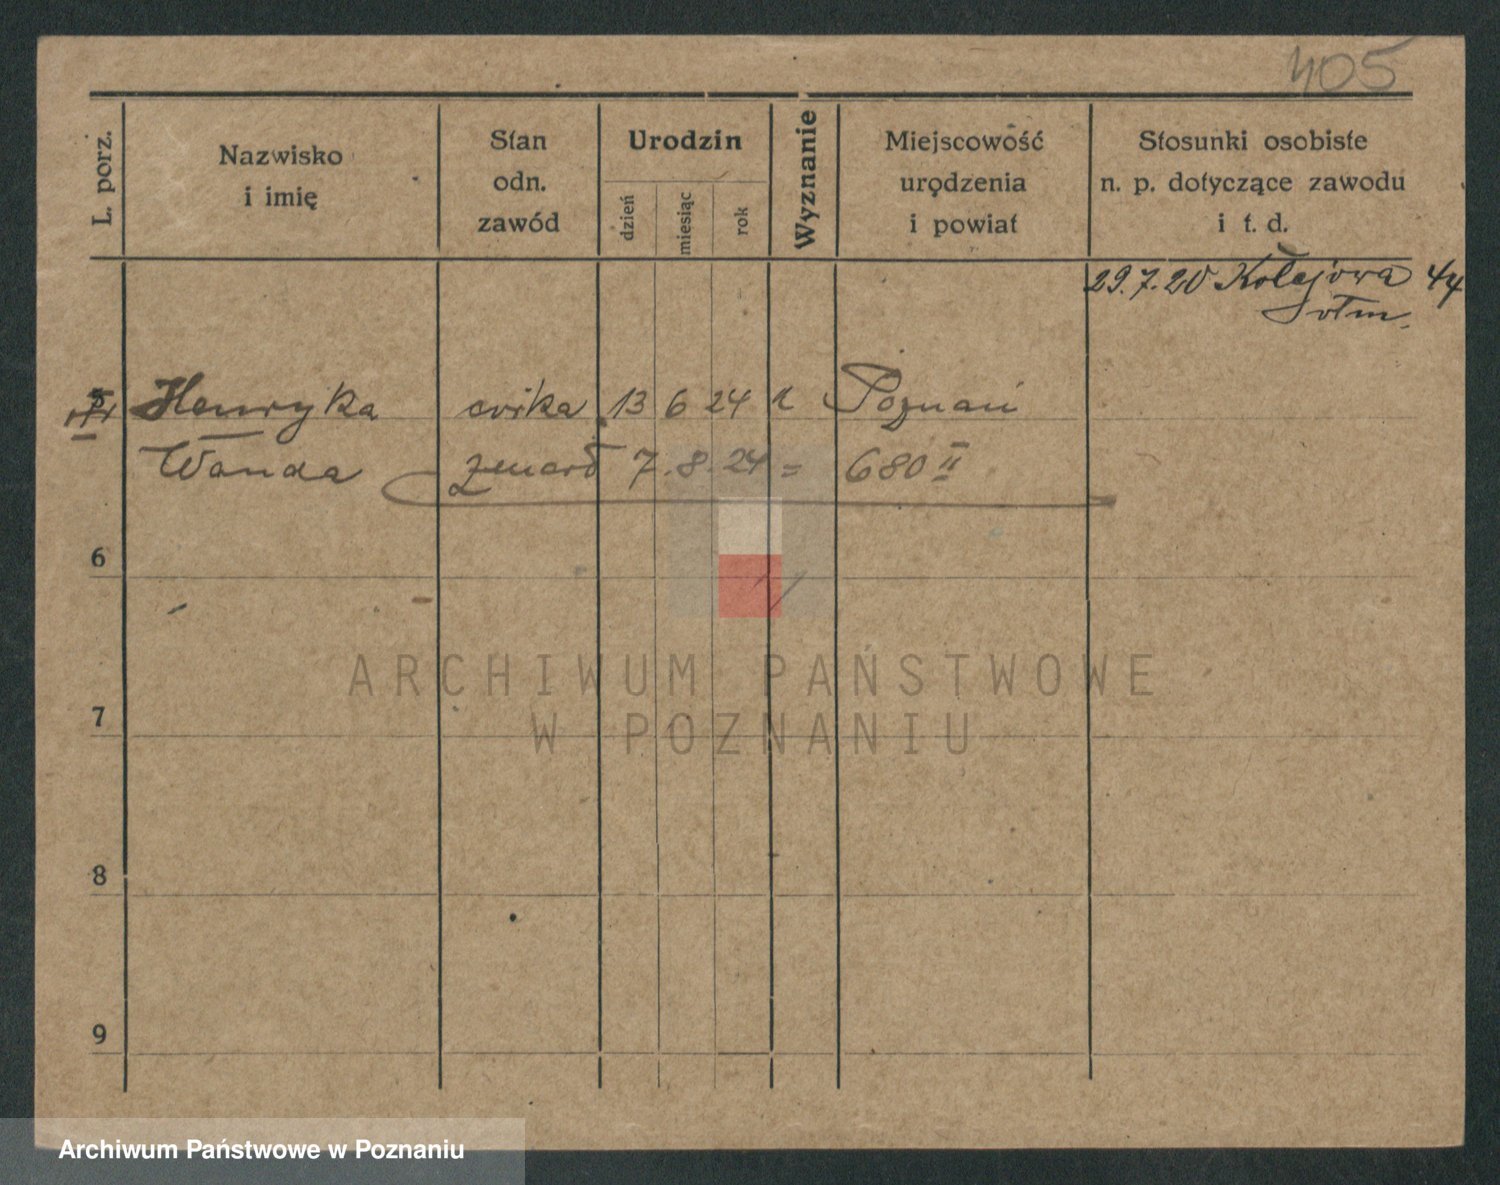 405
L. porz.
Nazwisko
i imię
Stan
odn.
zawód
Urodzin
dzień
miesiąc
rok
Wyznanie
Miejscowość
urodzenia
i powiat
Stosunki osobiste
n. p. dotyczące zawodu
i t. d.
29.7.20 Kolejowa 44
5 Henryka córka 13 6 24 k Poznań
Wanda zmarł 7. 8. 24 = 680 II
6
7
8
9
ARCHIWUM PAŃSTWOWE
W POZNANIU
Archiwum Państwowe w Poznaniu